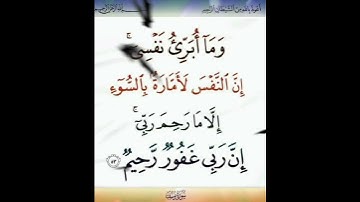 أعوذ بالله من الشيطان الرجيم
وَمَآ أُبَرِّئُ نَفۡسِيٓۚ
إِنَّ ٱلنَّفۡسَ لَأَمَّارَةُۢ بِٱلسُّوٓءِ
إِلَّا مَا رَحِمَ رَبِّيٓۚ
إِنَّ رَبِّي غَفُورٞ رَّحِيمٞ ٥٣